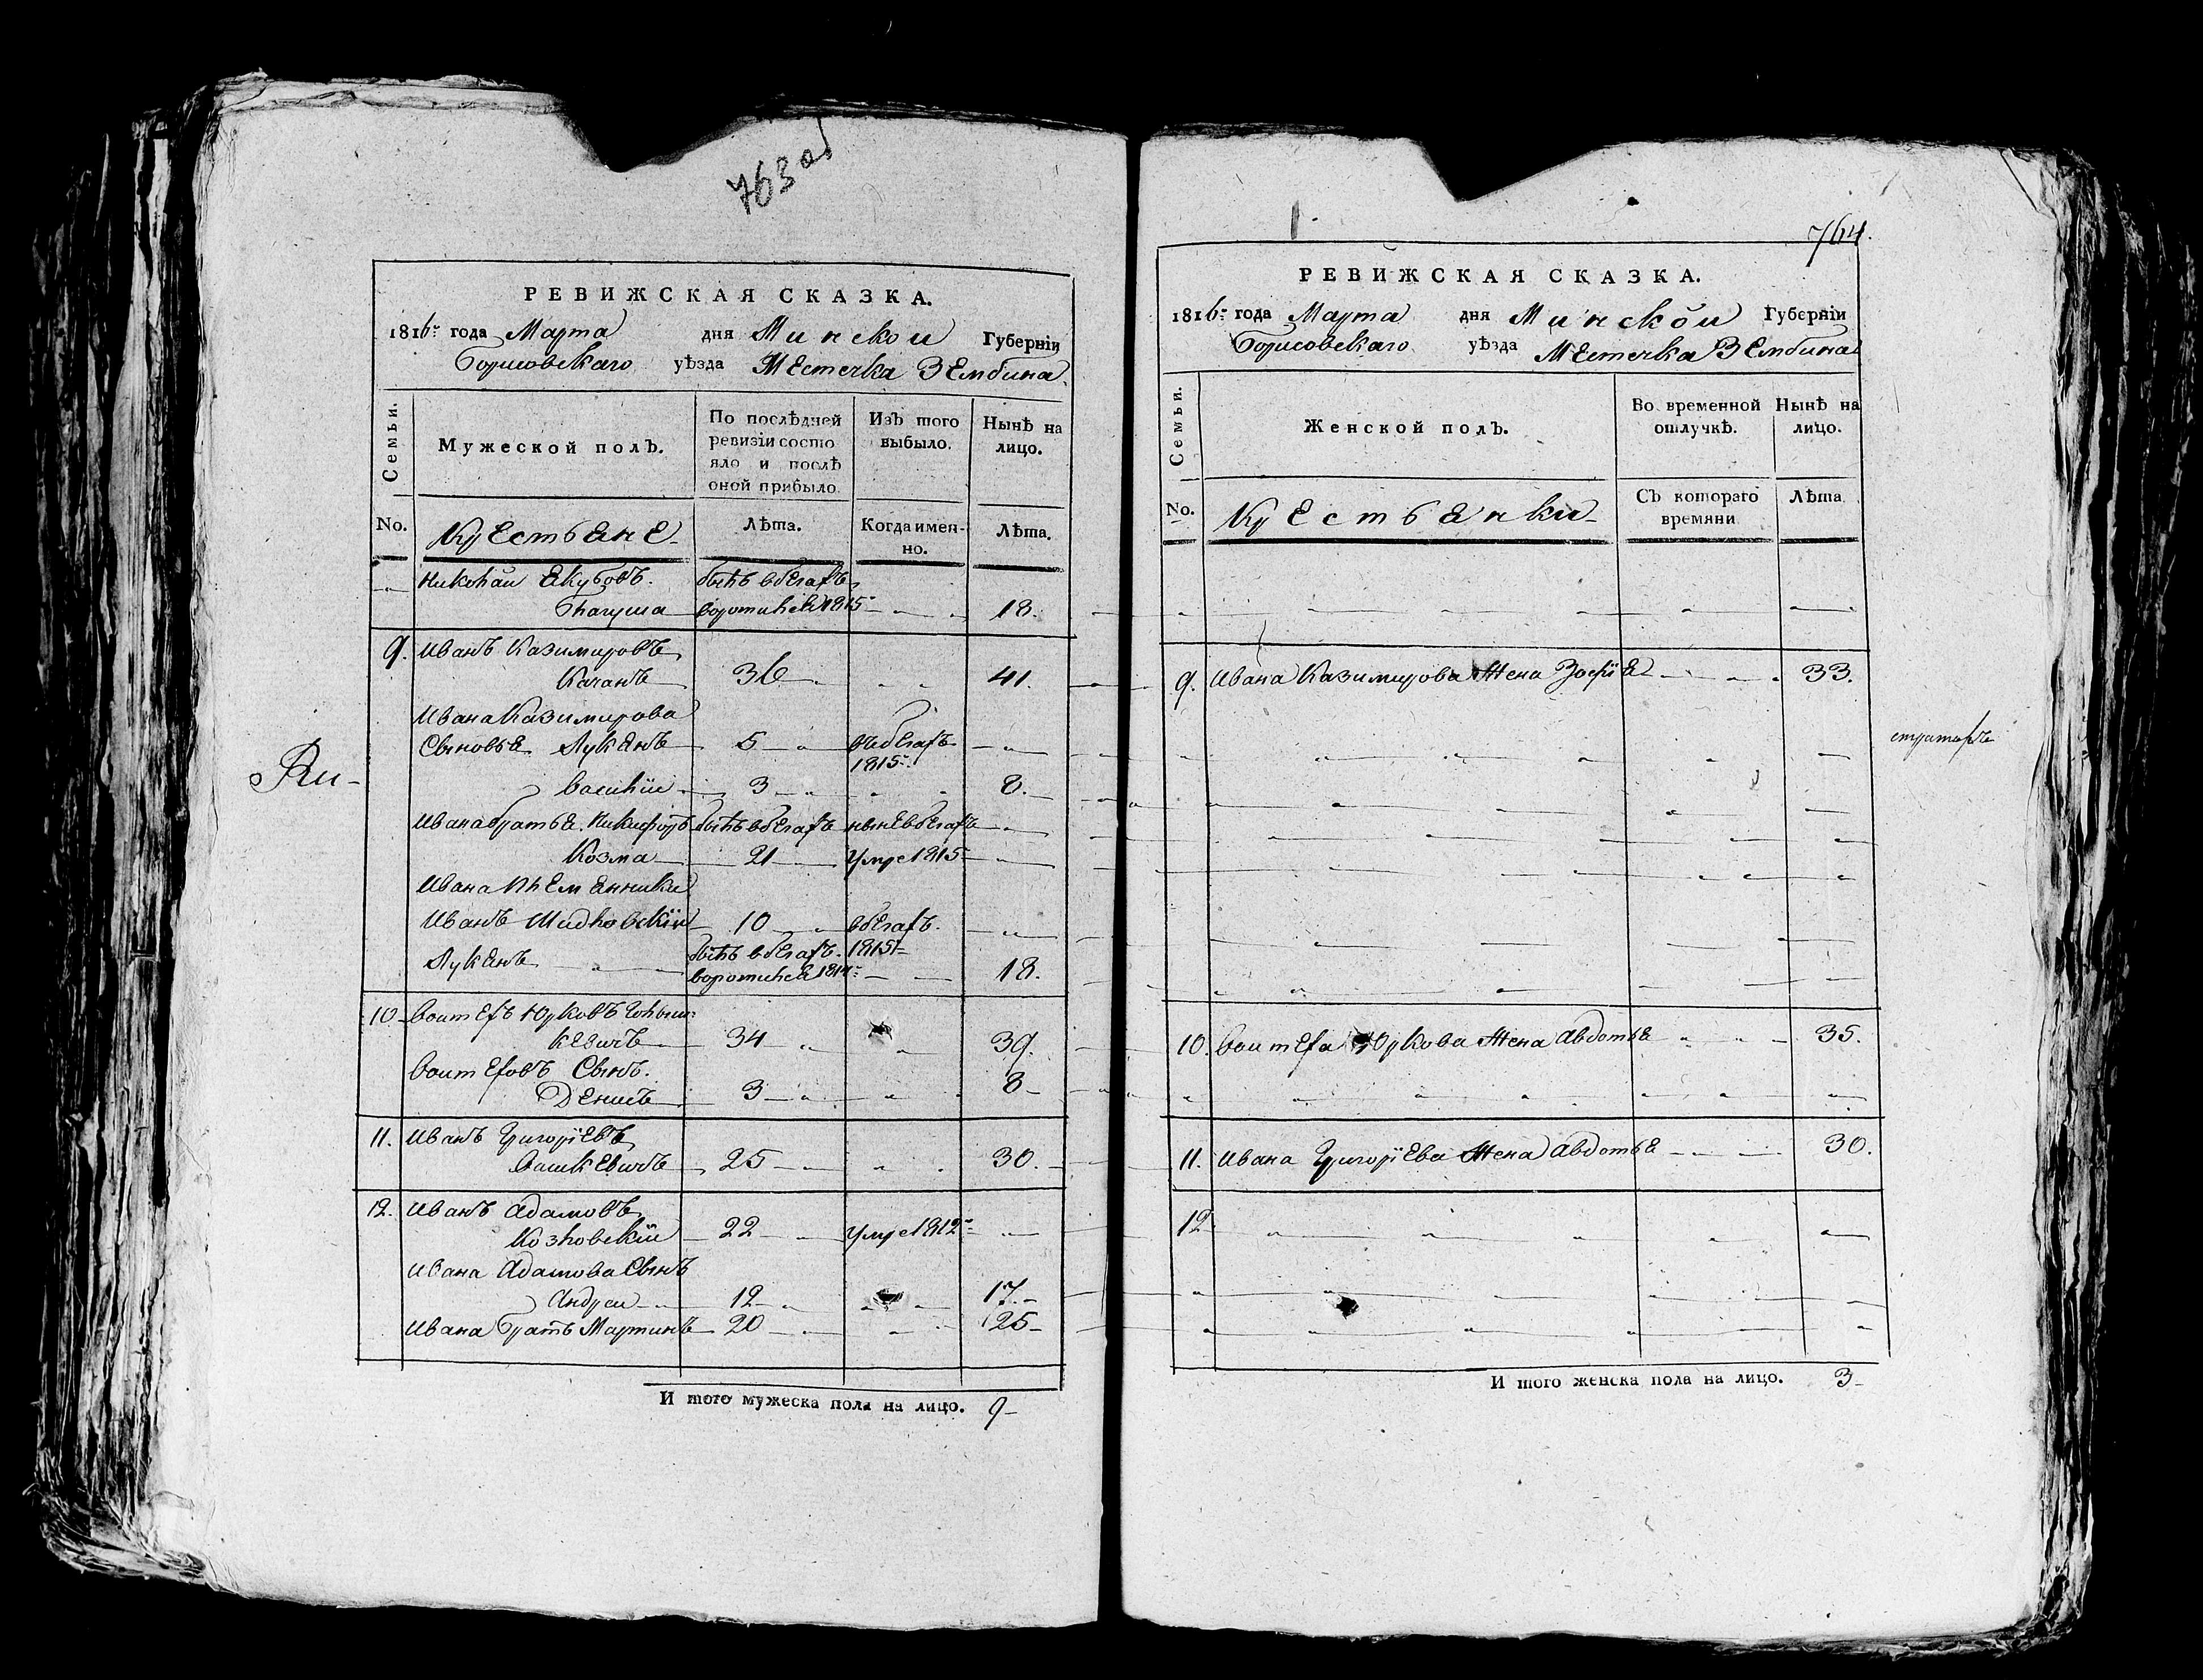 763 об
РЕВИЖСКАЯ СКАЗКА.
1816: года Марта дня Минской Губерніи
Борисовскаго уѣзда Местечка Зембина
Семьи.
Мужеской полъ.
По послѣдней ревизіи состояло и послѣ оной прибыло.
Изъ того выбыло.
Нынѣ на лицо.
No.
Крестьяне
Лѣта.
Когда именно.
Лѣта.
Николай Якубовъ. былъ вбегахъ
воротился 1815 18.
9. Иванъ Казимировъ
Качанъ 36 41.
Ивана Казимирова
Сыновья Лукянъ 5 въбегахъ
1815:
Василій 3 8.
Ивана братья Никифоръ былъ вбегахъ ныне вбегахъ
Козма 21 умре 1815
Ивана племянники
Иванъ Шидловскіи 10 вбегахъ.
1815
Лукянъ былъ вбегахъ.
воротился 1814: 18.
10. Воитехъ Юрковъ
кевичъ 34 39.
Воитеховъ Сынъ.
Денисъ 3 8
11. Иванъ Григоріевъ
Вашкевичъ 25 30.
12. Иванъ Адамовъ
Козловскіи 22 умре 1812
Ивана Адамова Сынъ
Андреи 12 17.
Ивана братъ Мартинъ 20 25
И того мужеска пола на лицо. 9
764.
РЕВИЖСКАЯ СКАЗКА.
1816: года Марта дня Минской Губерніи
Борисовскаго уѣзда Местечка Зембина
Семьи.
Женской полъ.
Во временной отлучкѣ.
Нынѣ на лицо.
No.
Крестьянки
Съ котораго времяни
Лѣта.
9. Ивана Казимирова Жена Зофія 33.
10. Воитеха Юркова Жена Авдотья 35.
11. Ивана Григоріева Жена Авдотья 30.
12
И того женска пола на лицо. 3